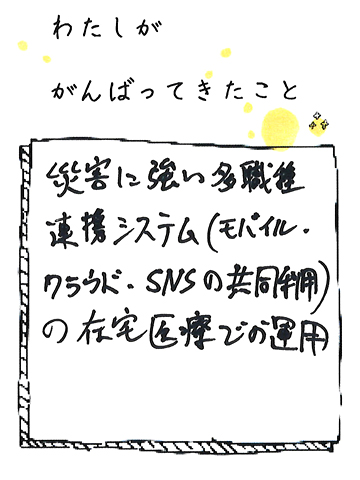 わたしが
がんばってきたこと
災害に強い多職種
連携システム(モバイル・
クラウド・SNSの共同利用)
の在宅医療での運用